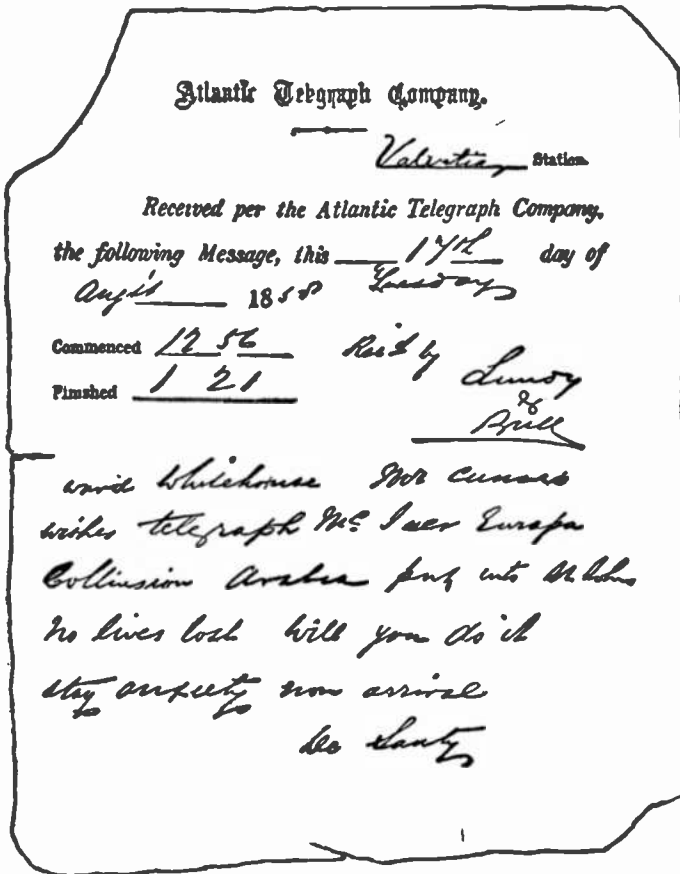 Atlantic Telegraph Company.
Valentia Station.
Received per the Atlantic Telegraph Company,
the following Message, this 17th day of
Augst 1858 Tuesday
Commenced 12 56 Rec'd by
Finished 1 21 Lundy
&
Bull
Whitehouse Mr Cunard
wishes telegraph Mc Iver Europa
Collinsion Arabia put into St Johns
No lives lost will you do it
stay anxiety non arrival
De Sauty